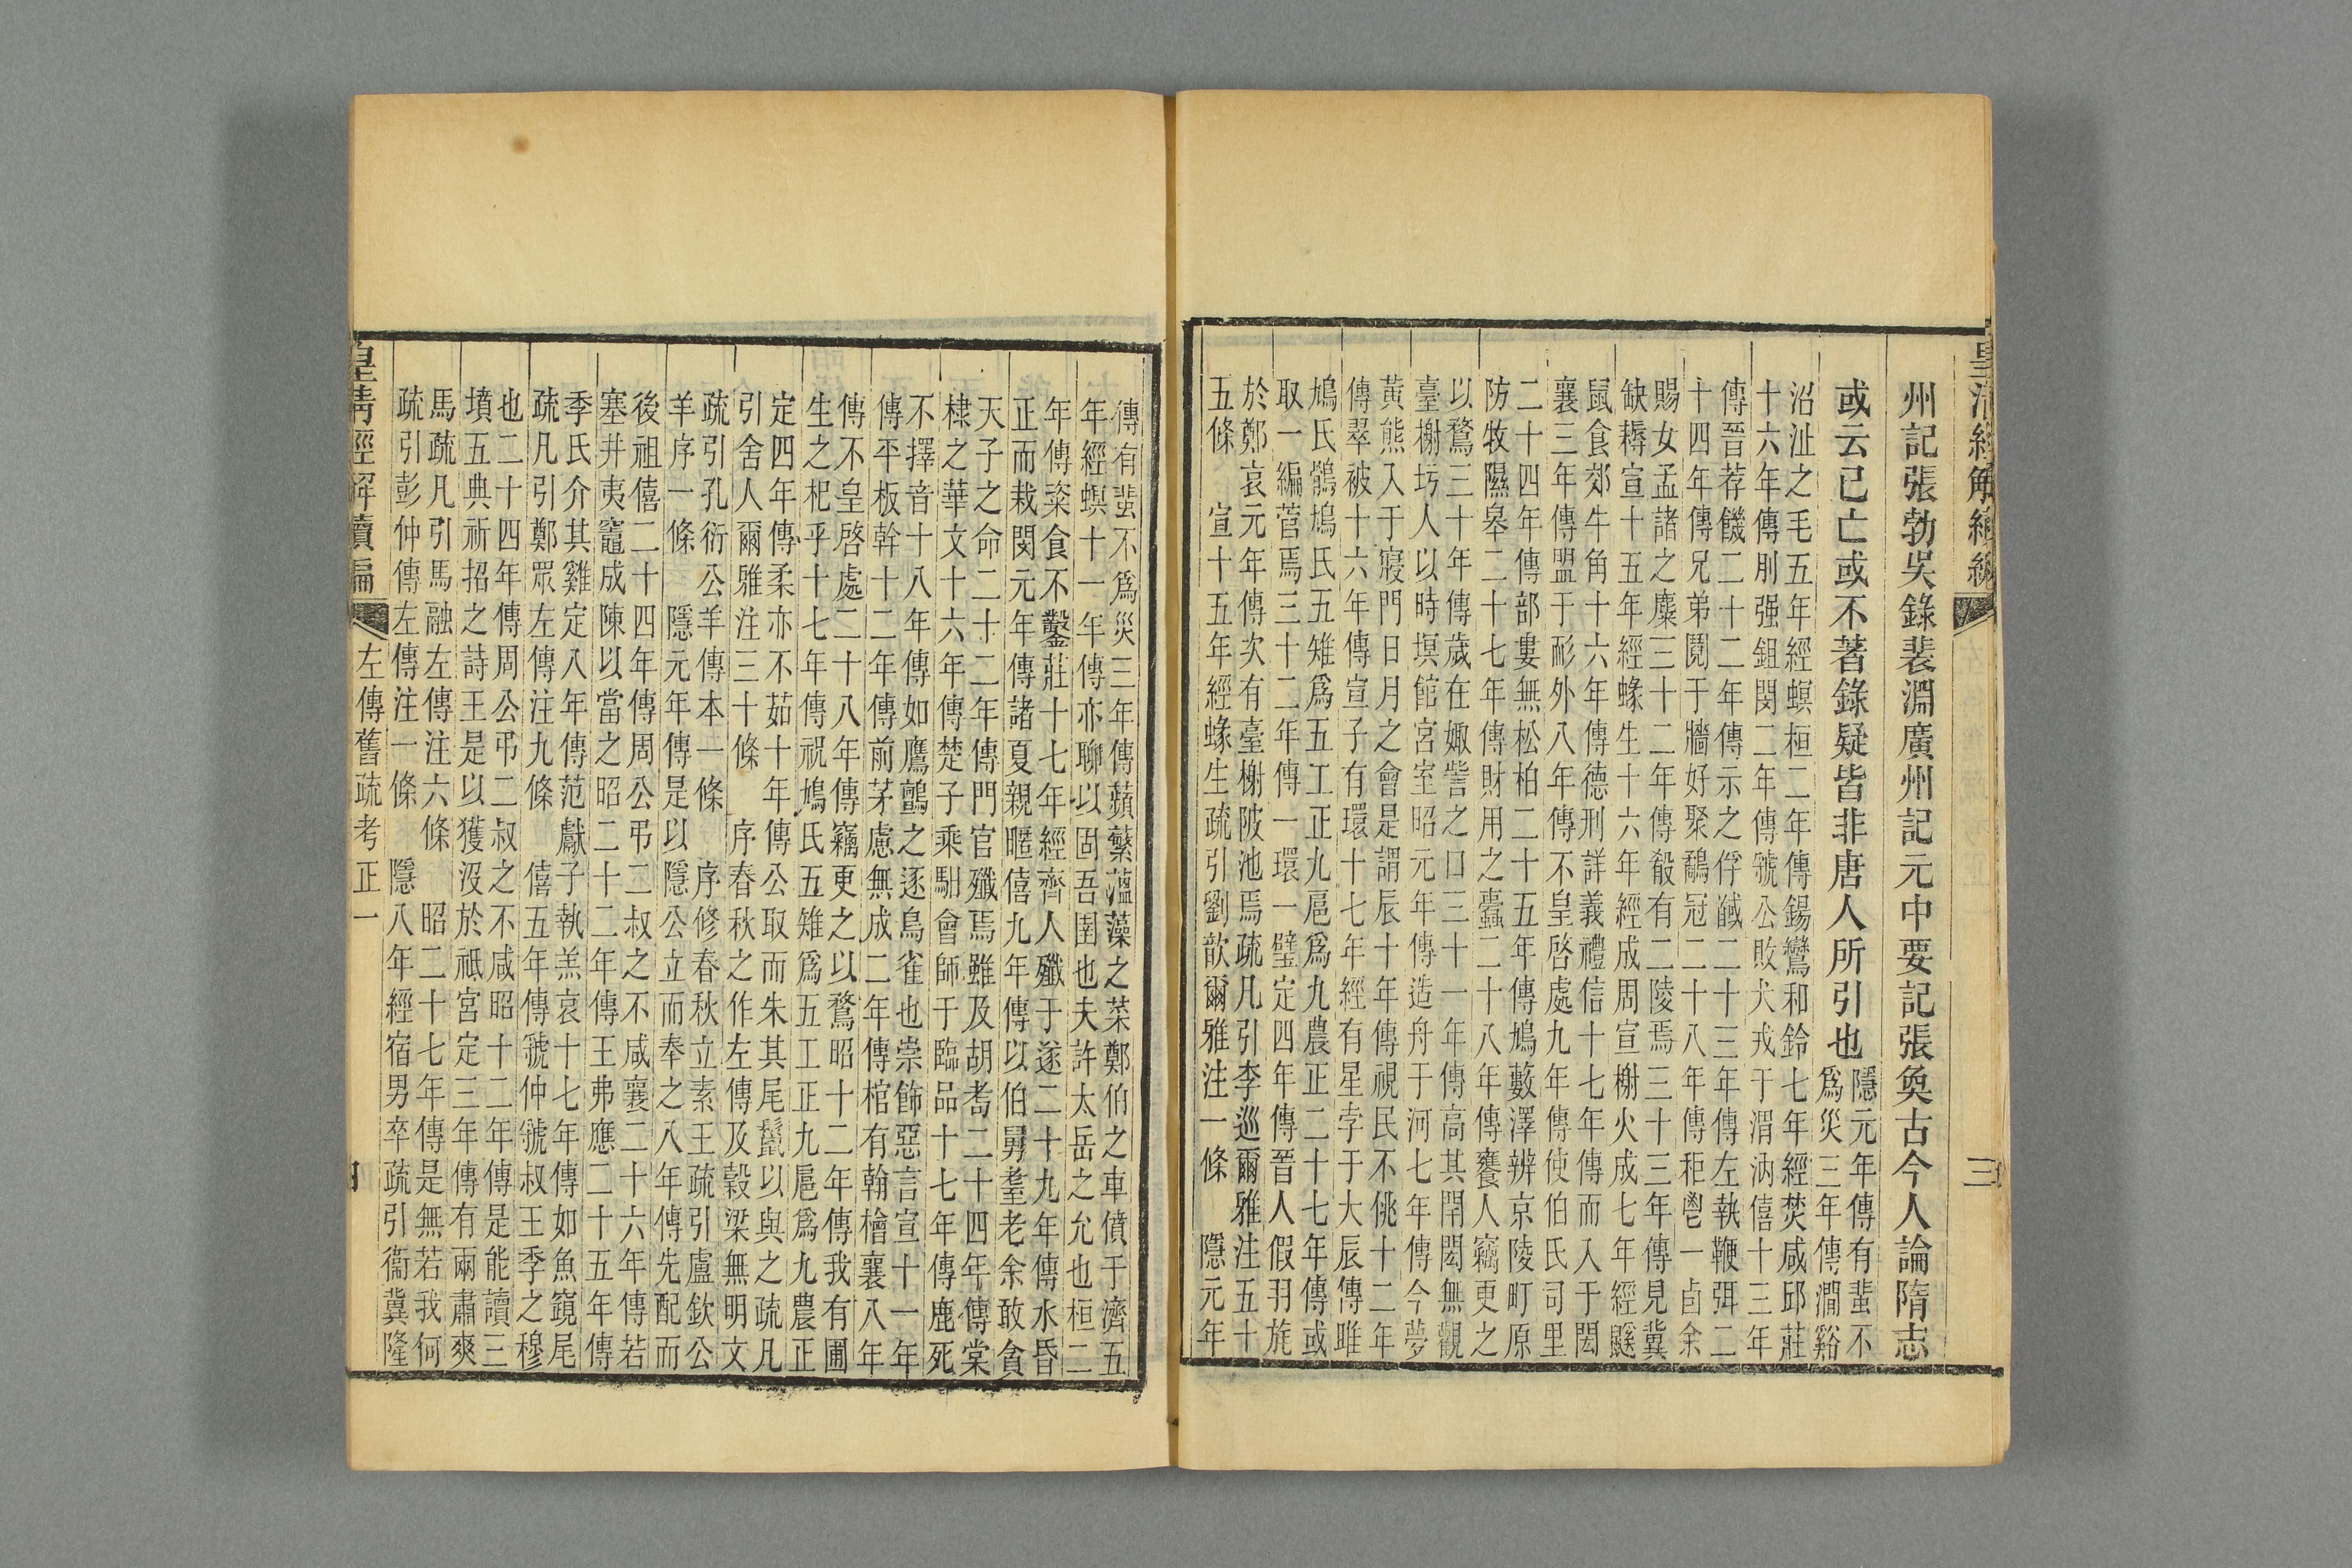 州記張勃吳錄裴淵廣州記元中要記張奐古今人論隋志
或云已亡或不著錄疑皆非唐人所引也
隱元年傳有蜚不
爲災三年傳澗谿
沼沚之毛五年經螟桓二年傳鍚鸞和鈴七年經焚咸邱莊
十六年傳刖强鉏閔二年傳虢公敗犬戎于渭汭僖十三年
傳晉荐饑二十二年傳示之俘馘二十三年傳左執鞭弭二
十四年傳兄弟鬩于牆好聚鷸冠二十八年傳秬鬯一卣余
賜女孟諸之麋三十二年傳殽有二陵焉三十三年傳見冀
缺耨宣十五年經蝝生十六年經成周宣榭火成七年經鼷
鼠食郊牛角十六年傳德刑詳義禮信十七年傳而入于閎
襄三年傳盟于耏外八年傳不皇啓處九年傳使伯氏司里
二十四年傳部婁無松柏二十五年傳鳩藪澤辨京陵町原
防牧隰皋二十七年傳財用之蠹二十八年傳饔人竊更之
以鶩三十年傳歲在娵訾之口三十一年傳高其閈閎無觀
臺榭圬人以時塓館宮室昭元年傳造舟于河七年傳今夢
黃熊入于寢門日月之會是謂辰十年傳視民不佻十二年
傳翠被十六年傳宣子有環十七年經有星孛于大辰傳雎
鳩氏鶻鳩氏五雉爲五工正九扈爲九農正二十七年傳或
取一編菅焉三十二年傳一環一璧定四年傳晉人假羽旄
於鄭哀元年傳次有臺榭陂池焉疏凡引李巡爾雅注五十
五條　宣十五年經蝝生疏引劉歆爾雅注一條　隱元年
傳有蜚不爲災三年傳蘋蘩薀藻之菜鄭伯之車僨于濟五
年經螟十一年傳亦聊以固吾圉也夫許太岳之允也桓二
年傳粢食不鑿莊十七年經齊人殲于遂二十九年傳水昏
正而栽閔元年傳諸夏親暱僖九年傳以伯舅耋老余敢貪
天子之命二十二年傳門官殲焉雖及胡耇二十四年傳棠
棣之華文十六年傳楚子乘馹會師于臨品十七年傳鹿死
不擇音十八年傳如鷹鸇之逐鳥雀也崇飾惡言宣十一年
傳平板幹十二年傳前茅慮無成二年傳棺有翰檜襄八年
傳不皇啓處二十八年傳竊更之以鶩昭十二年傳我有圃
生之杞乎十七年傳祝鳩氏五雉爲五工正九扈爲九農正
定四年傳柔亦不茹十年傳公取而朱其尾鬣以與之疏凡
引舍人爾雅注三十條　序春秋之作左傳及穀梁無明文
疏引孔衍公羊傳本一條　序修春秋立素王疏引盧欽公
羊序一條　隱元年傳是以隱公立而奉之八年傳先配而
後祖僖二十四年傳周公弔二叔之不咸襄二十六年傳若
塞井夷竈成陳以當之昭二十二年傳王弗應二十五年傳
季氏介其雞定八年傳范獻子執羔哀十七年傳如魚竀尾
疏凡引鄭眾左傳注九條　僖五年傳虢仲虢叔王季之穆
也二十四年傳周公弔二叔之不咸昭十二年傳是能讀三
墳五典祈招之詩王是以獲沒於祗宮定三年傳有兩肅爽
馬疏凡引馬融左傳注六條　昭二十七年傳是無若我何
疏引彭仲傳左傳注一條　隱八年經宿男卒疏引衞冀隆
皇清經解續編
左傳舊疏考正一